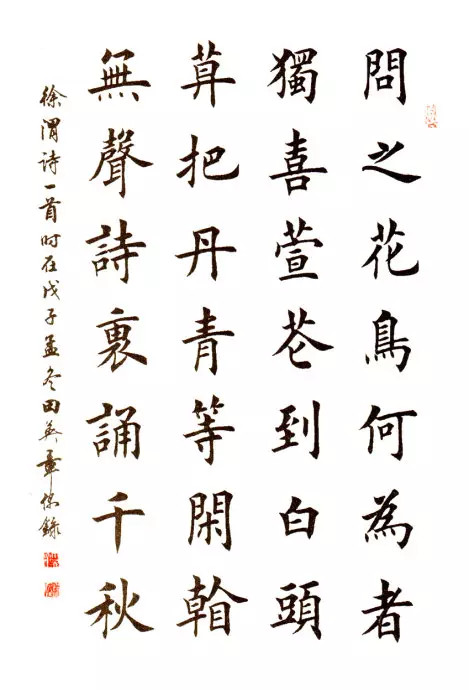 問之花鳥何為者
獨喜萱花到白頭
莫把丹青等閑看
無聲詩裏誦千秋
徐渭詩一首时在戊子孟冬田英章錄